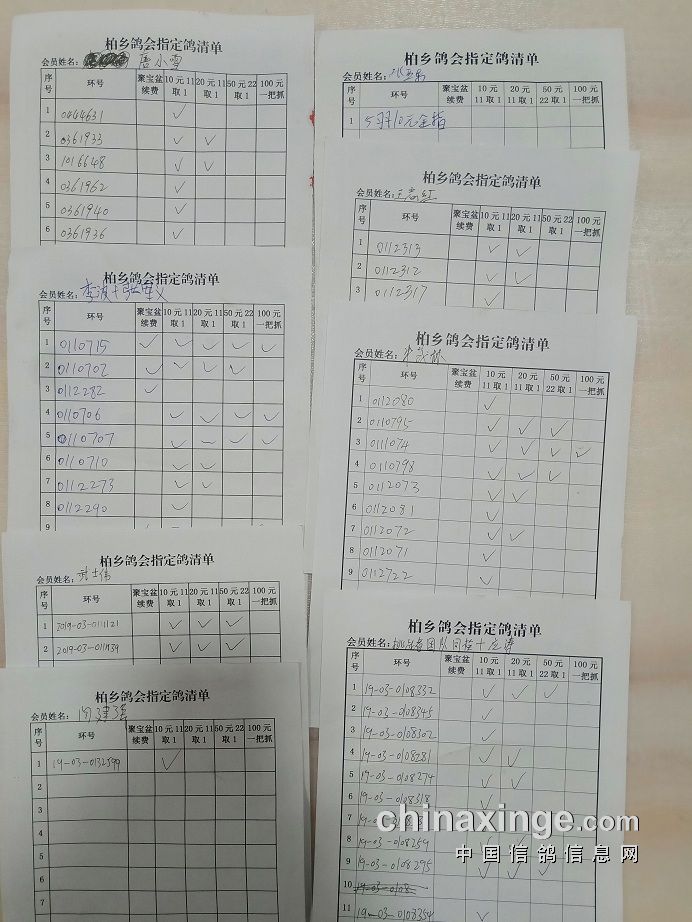 柏乡鸽会指定鸽清单
会员姓名: 唐小雪
序号 环号 聚宝盆续费 10元11取1 20元11取1 50元22取1 100元一把抓
1 0444631 ✓
2 0361933 ✓ ✓
3 1016648 ✓ ✓
4 0361962 ✓
5 0361940 ✓
6 0361936 ✓
柏乡鸽会指定鸽清单
会员姓名:
序号 环号 聚宝盆续费 10元11取1 20元11取1 50元22取1 100元一把抓
1 0110715 ✓ ✓ ✓ ✓
2 0110702 ✓ ✓ ✓ ✓
3 0112282 ✓
4 0110706 ✓ ✓ ✓ ✓
5 0110707 ✓ ✓ ✓ ✓
6 0110710 ✓ ✓
7 0112273 ✓ ✓
8 0112290 ✓
9
柏乡鸽会指定鸽清单
会员姓名: 武士伟
序号 环号 聚宝盆续费 10元11取1 20元11取1 50元22取1 100元一把抓
1 2019-03-0111121 ✓ ✓ ✓
2 ✓ ✓ ✓
柏乡鸽会指定鸽清单
会员姓名: 闫建强
序号 环号 聚宝盆续费 10元11取1 20元11取1 50元22取1 100元一把抓
1 19-03-0132599 ✓
2
3
4
5
6
7
柏乡鸽会指定鸽清单
会员姓名:
序号 环号 聚宝盆续费 10元11取1 20元11取1 50元22取1 100元一把抓
1 10元全指
柏乡鸽会指定鸽清单
会员姓名:
序号 环号 聚宝盆续费 10元11取1 20元11取1 50元22取1 100元一把抓
1 0112313 ✓ ✓
2 0112312 ✓ ✓
3 0112317 ✓
柏乡鸽会指定鸽清单
会员姓名:
序号 环号 聚宝盆续费 10元11取1 20元11取1 50元22取1 100元一把抓
1 0112080 ✓
2 0110795 ✓ ✓ ✓
3 011074 ✓ ✓ ✓ ✓
4 0110798 ✓ ✓ ✓
5 0112073 ✓ ✓
6 0112081 ✓
7 0112072 ✓ ✓
8 0112071 ✓
9 0112722 ✓
柏乡鸽会指定鸽清单
会员姓名:
序号 环号 聚宝盆续费 10元11取1 20元11取1 50元22取1 100元一把抓
1 19-03-0108332 ✓ ✓ ✓
2 19-03-0108345 ✓
3 19-03-0108302 ✓
4 19-03-0108281 ✓ ✓
5 19-03-0108274 ✓ ✓
6 19-03-0108318 ✓
7
8 19-03-0108259
9 19-03-0108295 ✓ ✓ ✓
10 19-03-0108
11 19-03-0108354
chinaxinge.com
中国信鸽信息网